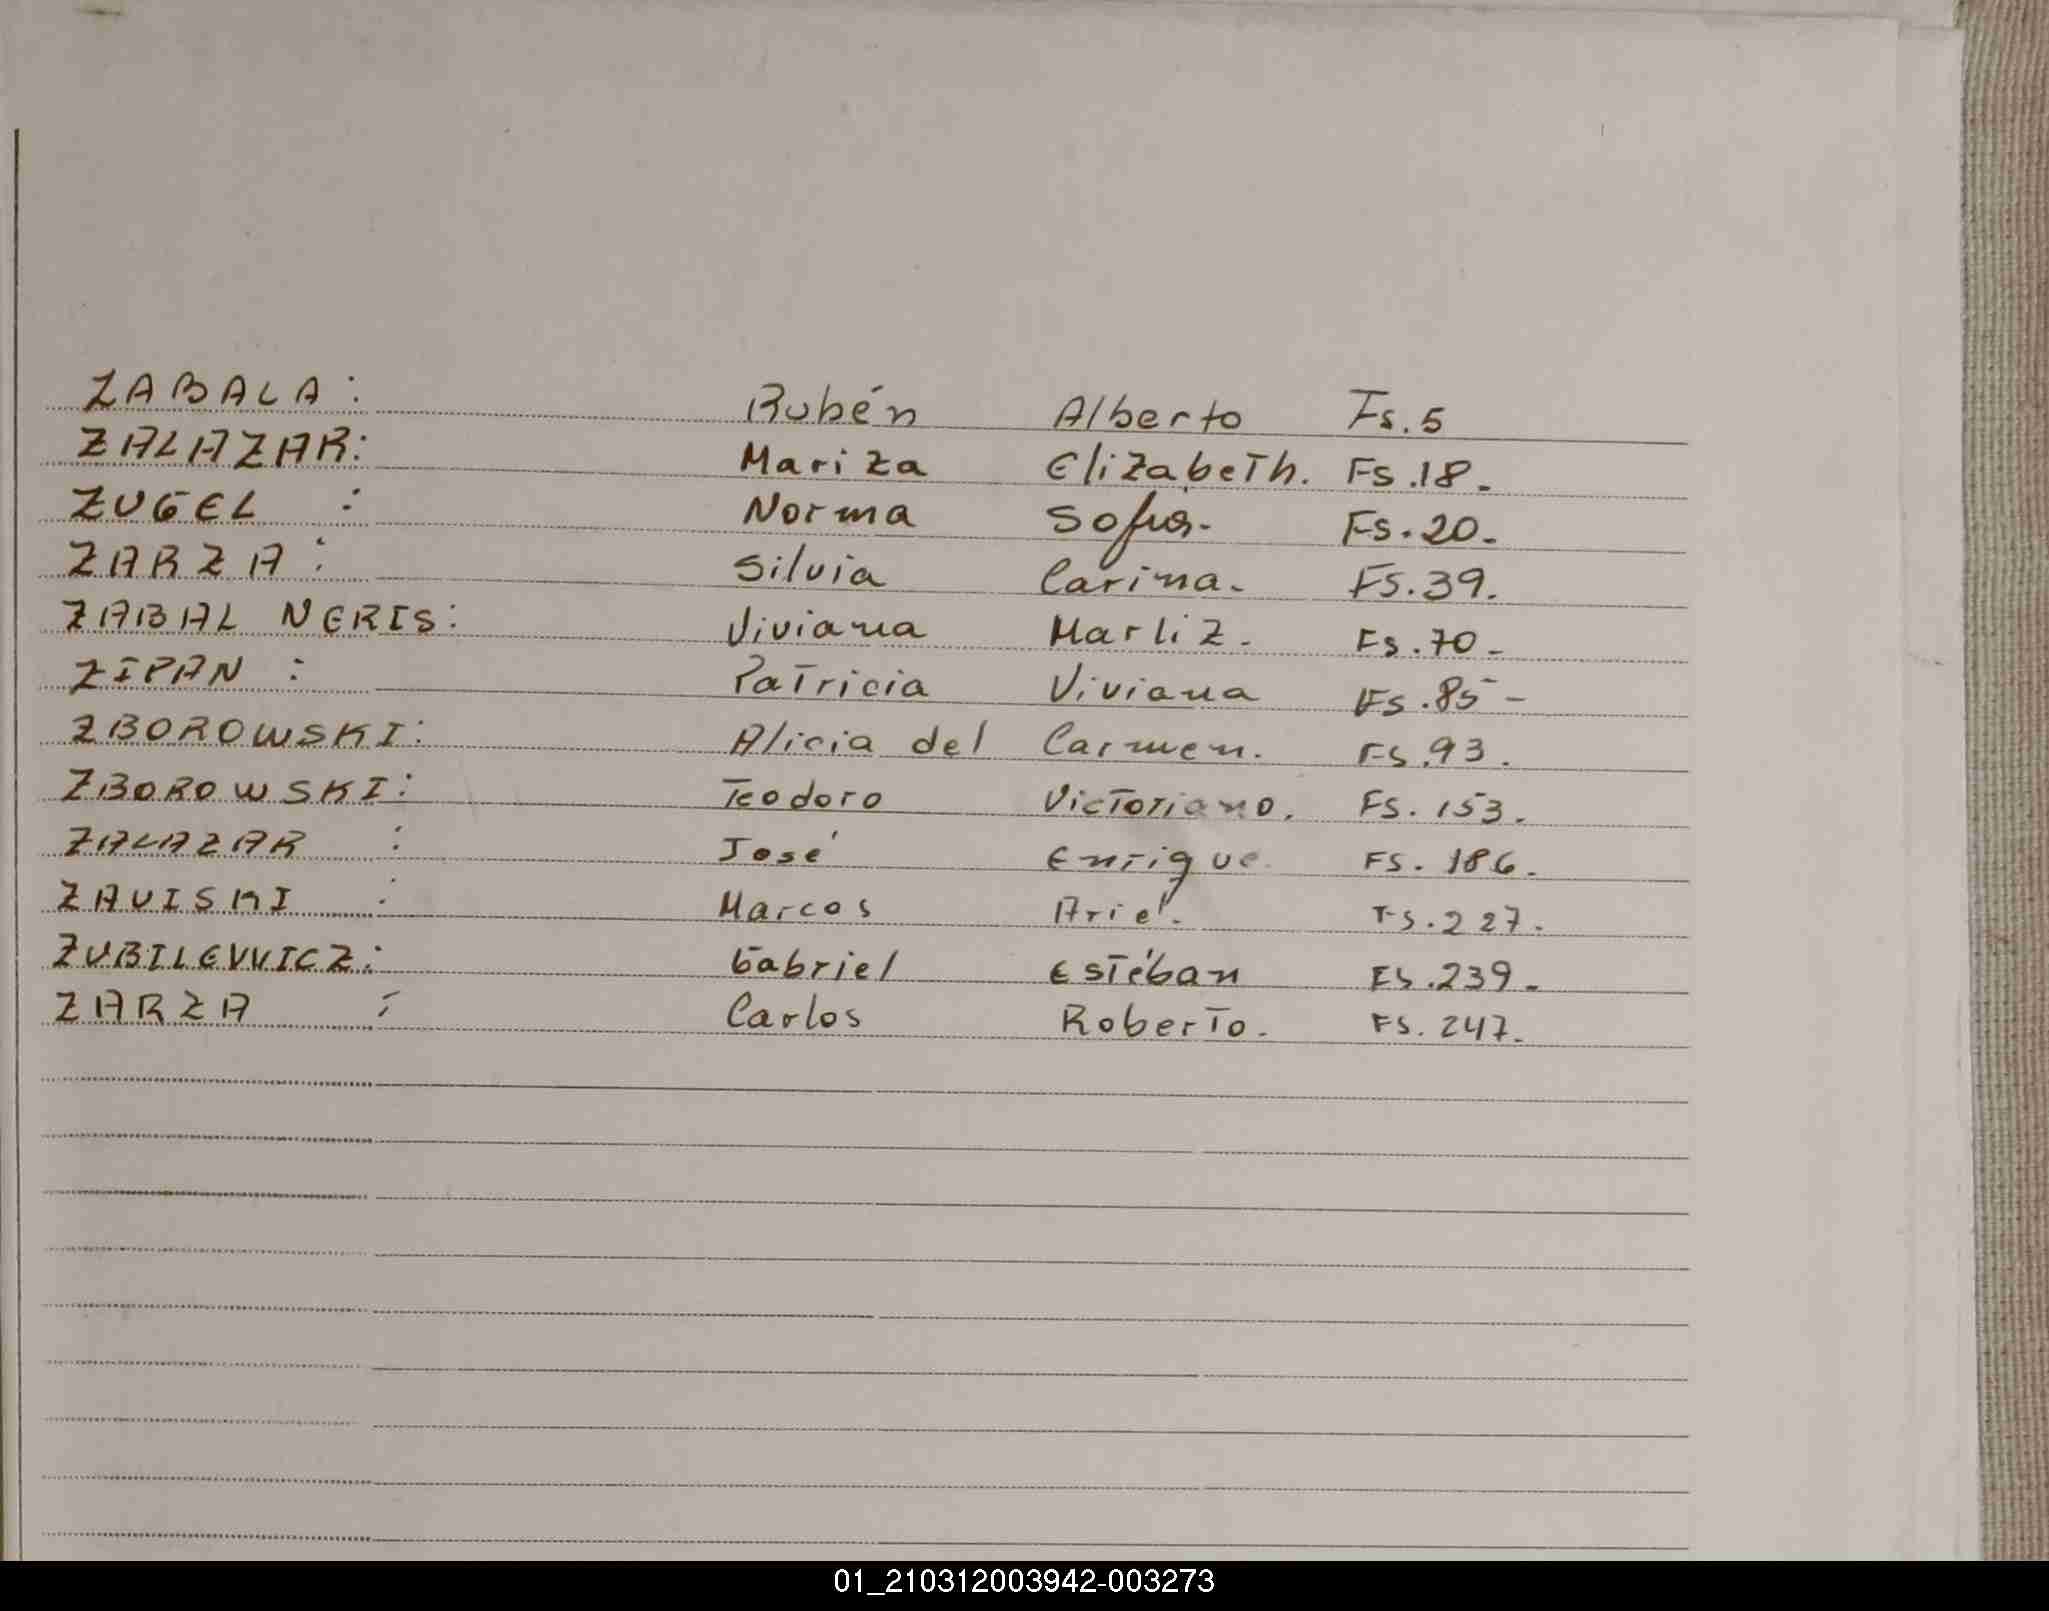 ZABALA: Rubén Alberto Fs. 5
ZALAZAR: Mariza Elizabeth. Fs. 18.
ZUGEL : Norma Sofía. Fs. 20.
ZARZA : Silvia Carina. FS. 39.
ZABAL NERIS: Viviana Marliz. Fs. 70.
ZIPAN : Patricia Viviana Fs. 85-
ZBOROWSKI: Alicia del Carmen. Fs. 93.
ZBOROWSKI: Teodoro Victoriano. FS. 153.
ZALAZAR : José Enrique FS. 186.
ZAVISKI : Marcos Ariel. FS. 227.
ZUBILEVVICZ: Gabriel Estéban FS. 239.
ZARZA : Carlos Roberto. FS. 247.
01_210312003942-003273